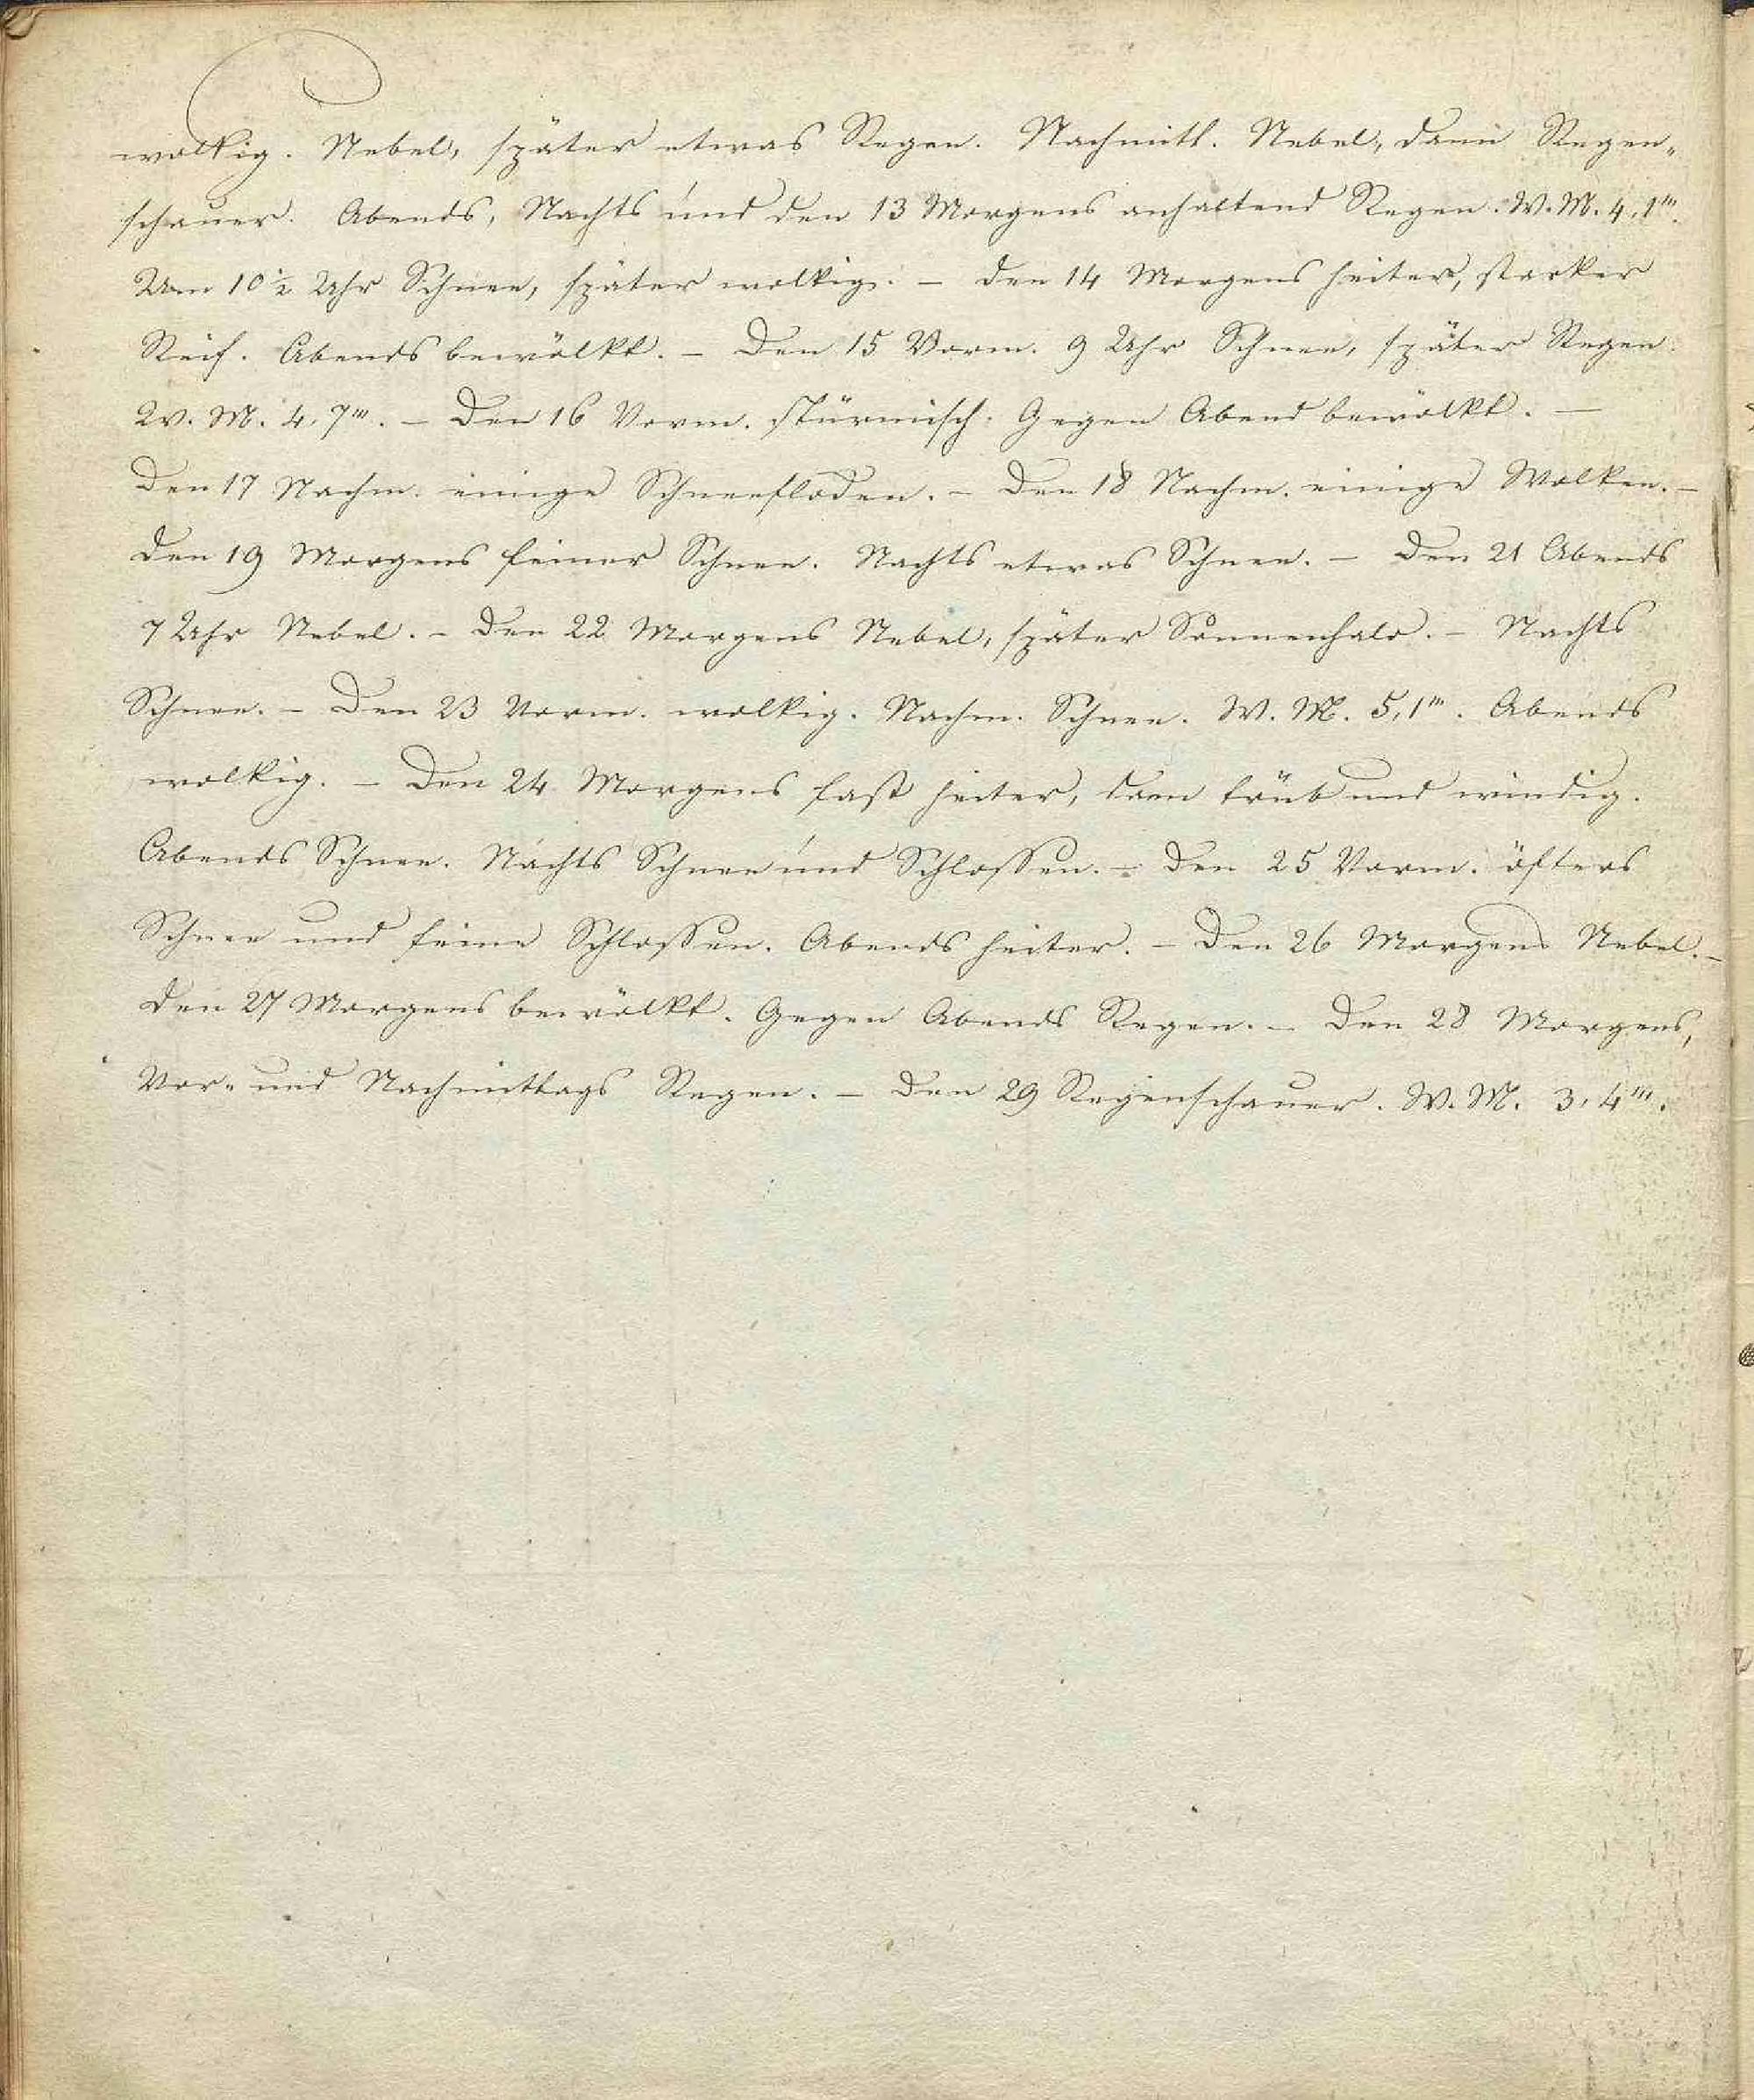 wolkig. Nebel, später etwas Regen. Nachmitt. Nebel, dann Regen-
schauer. Abends, Nachts und den 13 Morgens anhaltend Regen. W. M. 4,1‴.
Um 10½ Uhr Schnee, später wolkig. – Den 14 Morgens heiter, starker
Reif. Abends bewölkt. – Den 15 Vorm. 9 Uhr Schnee, später Regen.
W. M. 4,7‴. – Den 16 Vorm. stürmisch. Gegen Abend bewölkt. –
Den 17 Nachm. einige Schneefloden. – Den 18 Nachm. einige Wolken. –
Den 19 Morgens feiner Schnee. Nachts etwas Schnee. – Den 21 Abends
7 Uhr Nebel. – Den 22 Morgens Nebel, später Sonnenhalo. – Nachts
Schnee. – Den 23 Vorm. wolkig. Nachm. Schnee. W. M. 5,1‴. Abends
wolkig. – Den 24 Morgens fast heiter, dann trüb und windig.
Abends Schnee. Nachts Schnee und Schlossen. – Den 25 Vorm. öfters
Schnee und feine Schlossen. Abends heiter. – Den 26 Morgens Nebel. –
Den 27 Morgens bewölkt. Gegen Abends Regen. – Den 28 Morgens,
Vor- und Nachmittags Regen. – Den 29 Regenschauer. W. M. 3,4‴.